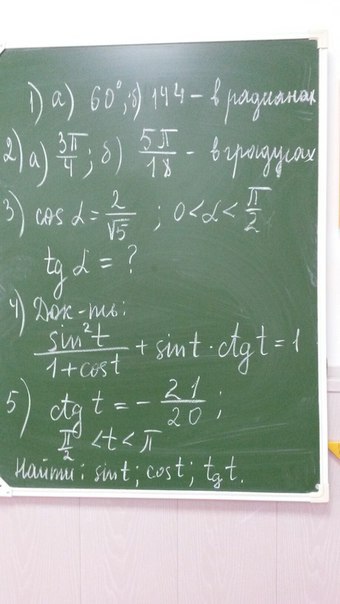 1) а) 60°; б) 144 - в радианах
2) а) 3π/4; б) 5π/18 - в градусах
3) cos α = 2/√5 ; 0 < α < π/2
tg α = ?
4) Док-ть:
sin²t/(1+cost) + sint · ctg t = 1
5) ctg t = - 21/20 ;
π/2 < t < π
Найти: sint; cost; tg t.